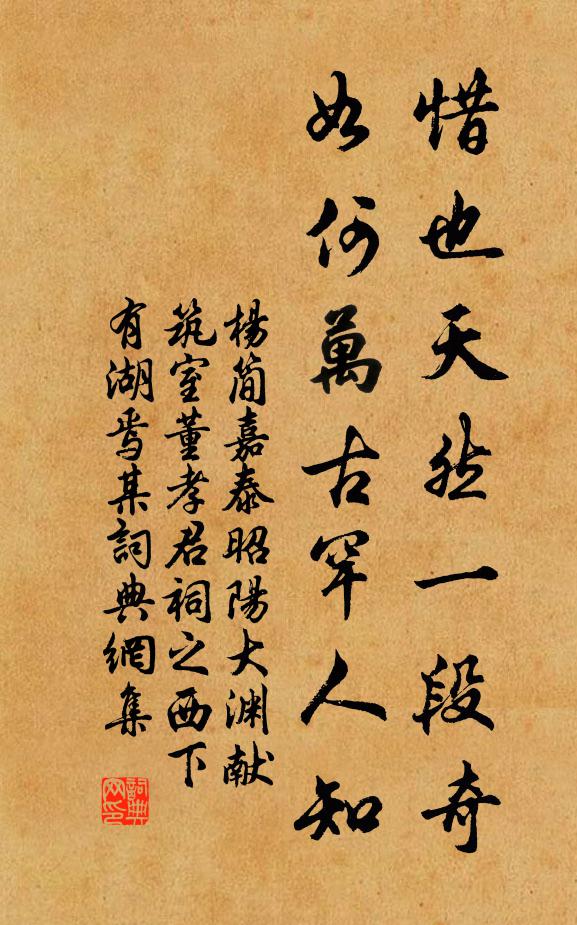 惜也天然一段奇
如何萬古罕人知
楊簡嘉泰昭陽大渊献
筑室董孝君祠之西下
有湖焉某詞典網集
詞典網印